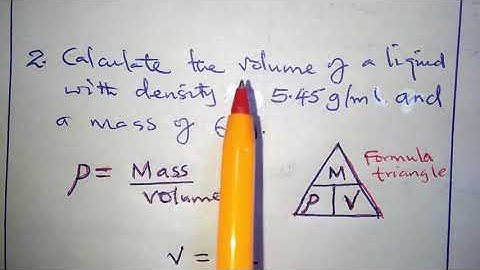 2. Calculate the volume of a liquid
with density 5.45 g/ml and
a mass of
ρ = Mass
Volume
Formula
triangle
M
ρ V
V =